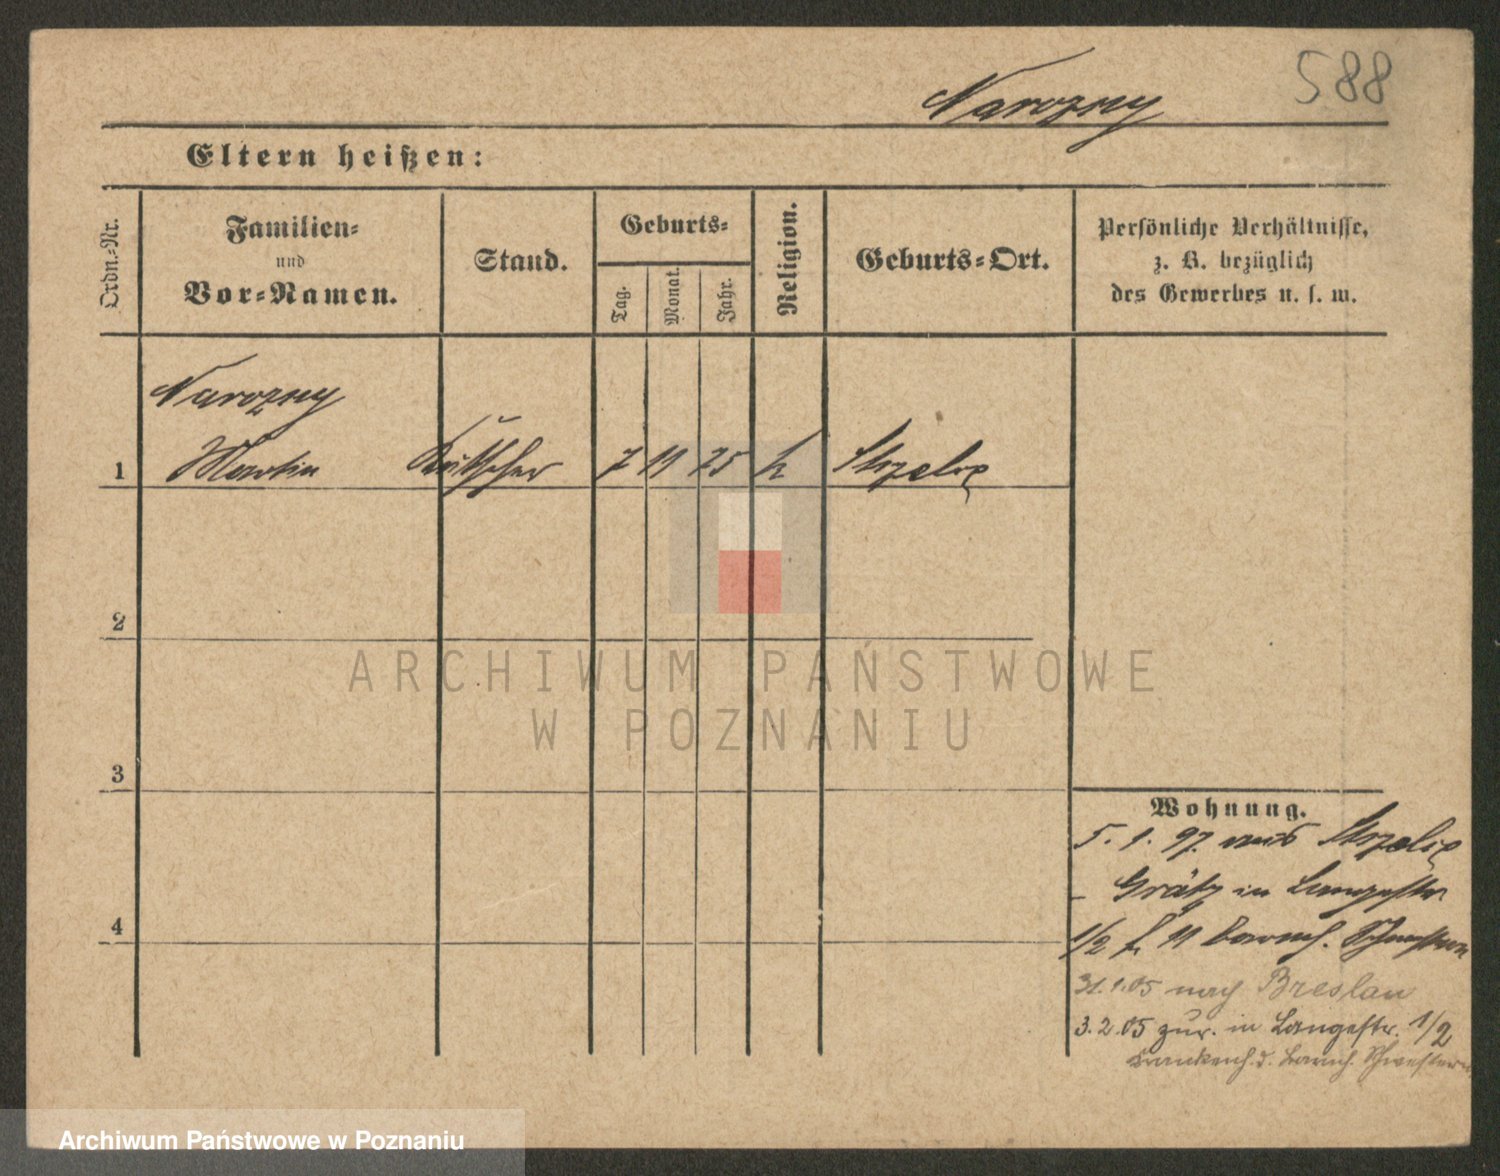 588
Narozny
Eltern heißen:
Ordn.-Nr.
Familien-
und
Vor-Namen.
Stand.
Geburts-
Tag.
Monat.
Jahr.
Religion.
Geburts-Ort.
Persönliche Verhältnisse,
z. B. bezüglich
des Gewerbes u. s. w.
Narozny
1 Martin Kutscher 7 11 75 k Strzelce
2
ARCHIWUM PAŃSTWOWE
W POZNANIU
3
Wohnung.
5.1.97. aus Strzelce
- Grätz in Langestr.
1/2 b. 11 barmh. Schwestern
31.1.05 nach Breslau
4
3.2.05 zur. in Langestr. 1/2
Krankenh. d. barmh. Schwestern
Archiwum Państwowe w Poznaniu